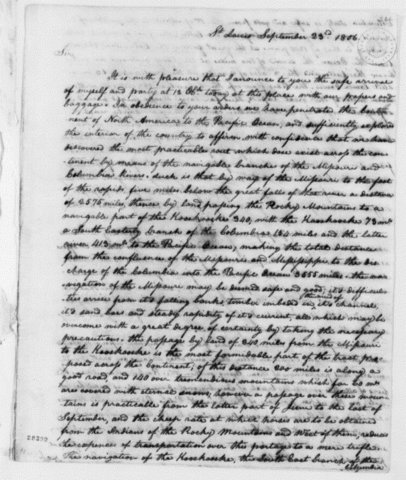 St. Louis September 23rd 1806.
Sir,
It is with pleasure that I anounce to you the safe arrival
of myself and party at 12 Ock. today at this place with our papers and
baggage. In obedience to your orders we have penetrated the Conti-
nent of North America to the Pacific Ocean, and sufficiently explored
the interior of the country to affirm with confidence that we have
discovered the most practicable rout which dose exist across the con-
tinent by means of the navigable branches of the Missouri and
Columbia Rivers. Such is that by way of the Missouri to the foot
of the rapids five miles below the great falls of that river a distance
of 2575 miles, thence by land passing the Rocky Mountains to a
navigable part of the Kooskooske 340; with the Kooskooske 73 mls.
a South Easterly branch of the Columbia 154 miles and the latter
river 413 mls. to the Pacific Ocean; making the total distance
from the confluence of the Missouri and Mississippi to the dis-
charge of the Columbia into the Pacific Ocean 3555 miles. the nav-
igation of the Missouri may be deemed safe and good; it's difficul-
ties arise from it's falling banks, timber imbeded in the mud of it's channel,
it's sand bars and steady rapidity of it's current, all which may be
overcome with a great degree of certainty by taking the necessary
precautions. the passage by land of 340 miles from the Missouri
to the Kooskooske is the most formidable part of the tract pro-
posed across the Continent; of this distance 200 miles is along a
good road, and 140 over tremendious mountains which for 60 mls.
are covered with eternal snows; however a passage over these moun-
tains is practicable from the latter part of June to the last of
September, and the cheep rate at which horses are to be obtained
from the Indians of the Rocky Mountains and West of them, reduces
the expences of transportation over this portage to a mere trifle.
The navigation of the Kooskooske, the South East branch of the
Columbia